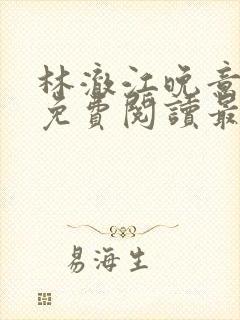 林澈江晚音
免費閱讀最
易海生